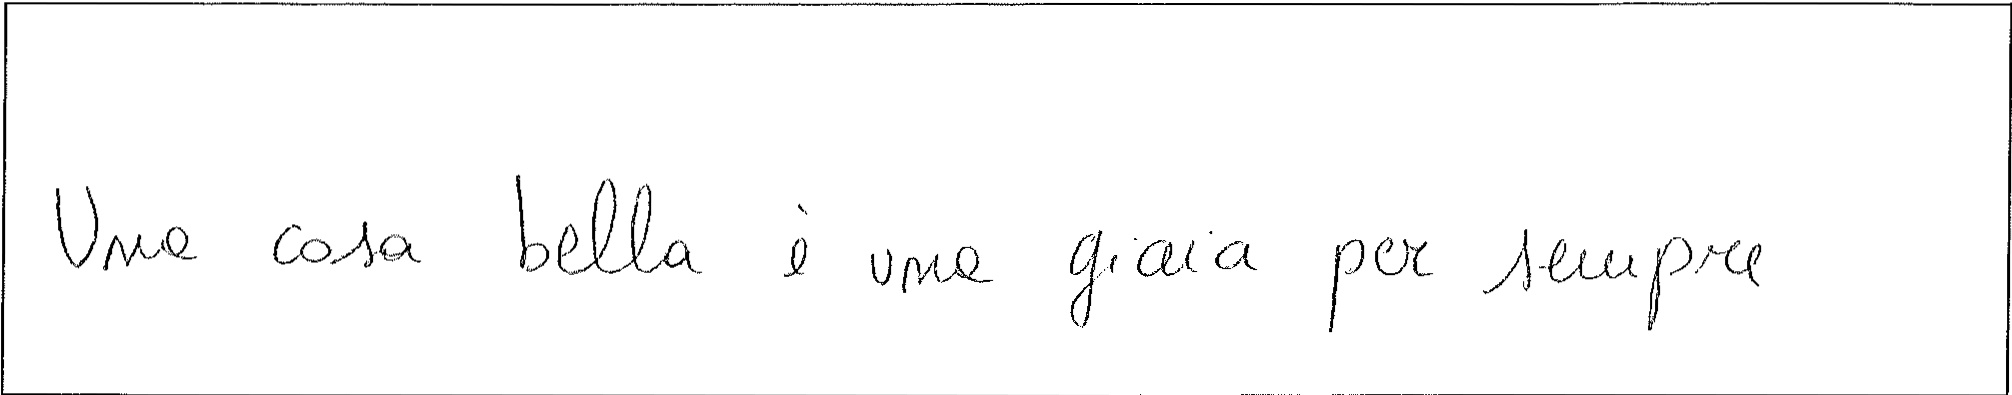 Una cosa bella è una gioia per sempre